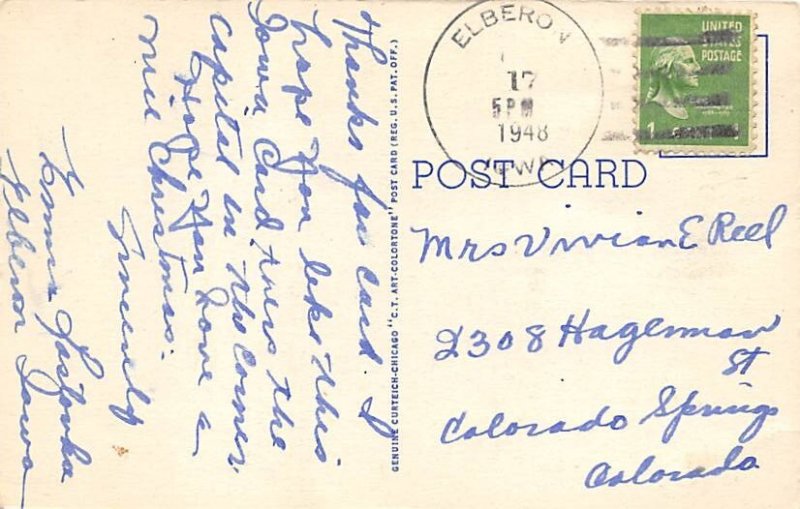 Thanks for card. I
hope You like this
Iowa Card. hers the
Capital in the Corner.
Hope You have a
nice Christmas.
Sincerely
Elberon Iowa
GENUINE CURTEICH-CHICAGO "C.T. ART-COLORTONE" POST CARD (REG. U.S. PAT. OFF.)
ELBERON
17
5 PM
1948
IOWA
UNITED
STATES
POSTAGE
1
POST CARD
Mrs Vivian E Reel
2308 Hagerman
St
Colorado Springs
Colorado